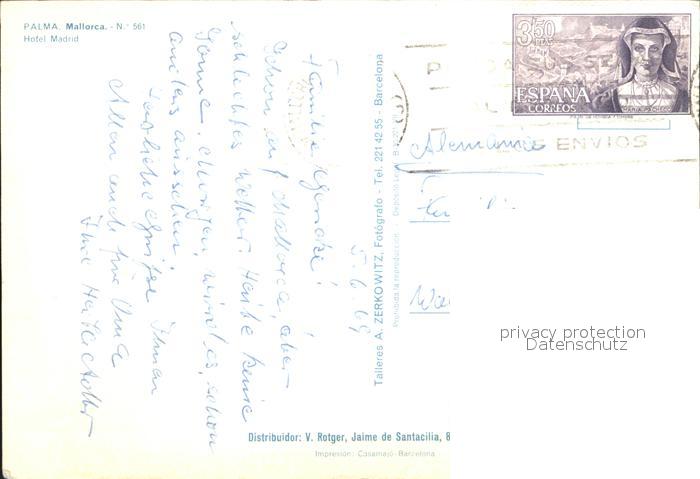 PALMA. Mallorca. - N.° 561
Hotel Madrid
5.6.69
Familie
Schon auf Mallorca, aber
schlechtes Wetter. Heute keine
Sonne. Morgen wird es schon
anders aussehen.
Herzliche Grüße Ihnen
Allen und für Oma
Ihre
Talleres A. ZERKOWITZ, Fotógrafo - Tel. 221 42 55 - Barcelona
Prohibida la reproducción - Depósito Legal B.
Distribuidor: V. Rotger, Jaime de Santacilia, 8
Impresión: Casamajó-Barcelona
3'50
PTAS
ESPAÑA
CORREOS
MARIA PACHECO
ENVIOS
Alemania
privacy protection
Datenschutz